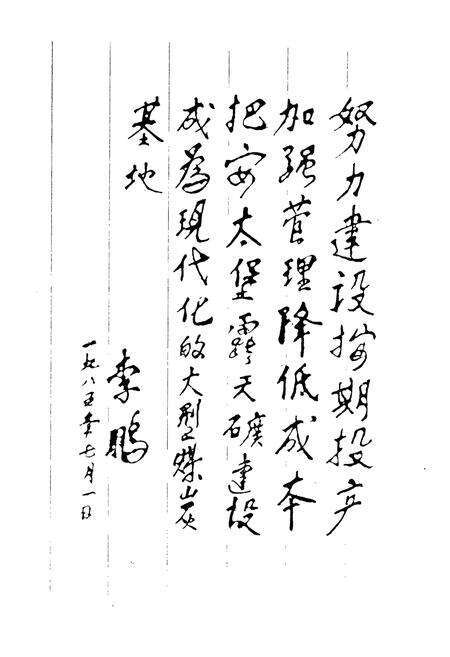 努力建设按期投产
加强管理降低成本
把安太堡露天矿建设
成为现代化的大型煤炭
基地
李鹏
一九八五年七月一日